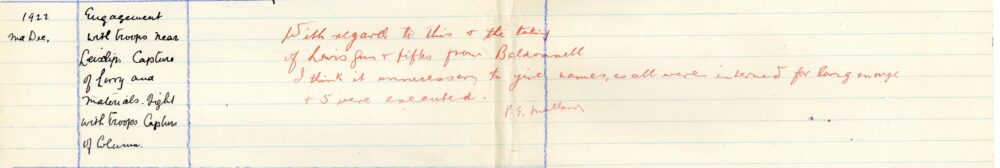 1922
Engagement
Dec.
with troops near
Leixlip. Capture
of Lorry and
materials. Fight
with troops Capture
of Column.
With regard to this & the taking
of Lewis gun & rifles from Baldonnell
I think it unnecessary to give names, as all were interned for long enough
+ 5 were executed.
P.